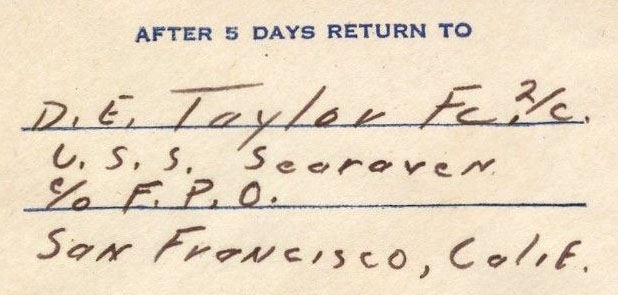 AFTER 5 DAYS RETURN TO
D. E. Taylor Fc. 2/c.
U. S. S. Searaven
c/o F. P. O.
San Francisco, Calif.